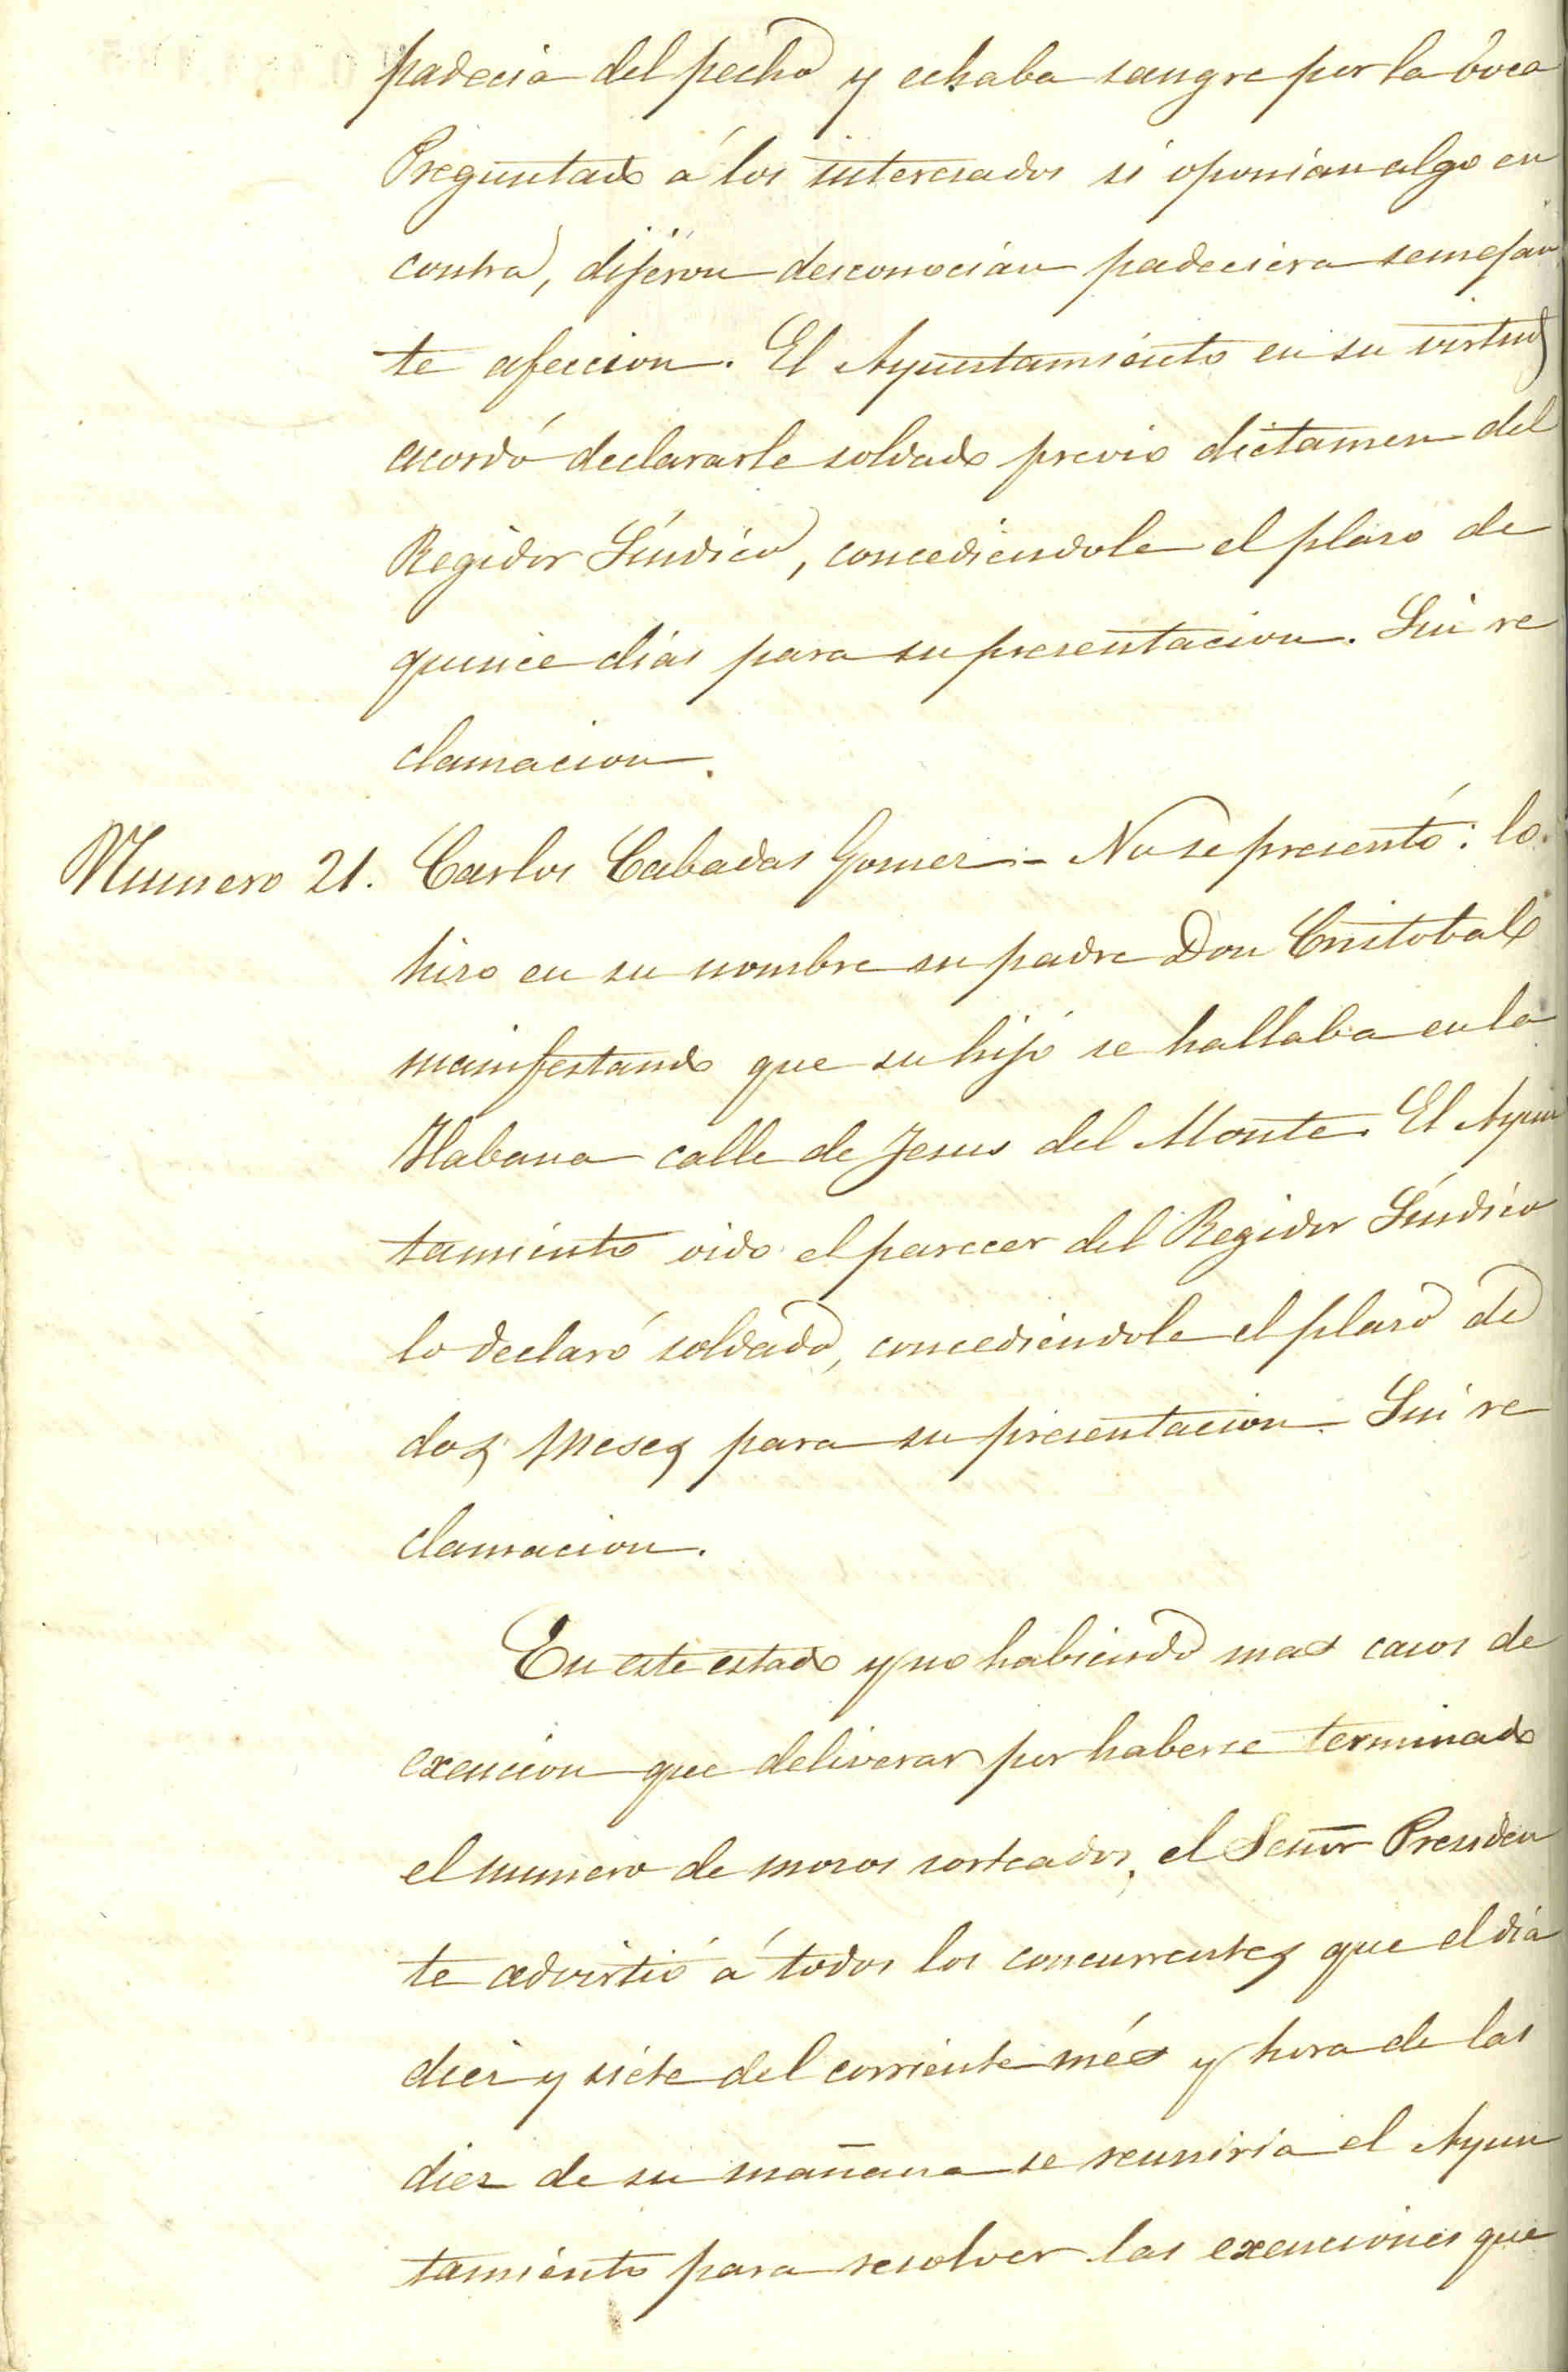 padecia del pecho y echaba sangre por la boca
Preguntado á los interesados si oponian algo en
contra, dijeron desconocian padeciera semejan
te afeccion. El Ayuntamiento en su virtud
acordó declararle soldado previo dictamen del
Regidor Síndico, concediendole el plaso de
quince dias para su presentacion. Sin re
clamacion.
Numero 21. Carlos Cabadas Gomez - No se presentó: lo
hiso en su nombre su padre Don Cristobal
manifestando que su hijo se hallaba en la
Habana calle de Jesus del Monte. El Ayun
tamiento oido el parecer del Regidor Síndico
lo declaró soldado, concediendole el plaso de
dos meses para su presentacion. Sin re
clamacion.
En este estado y no habiendo mas casos de
exencion que deliverar por haberse terminado
el numero de mosos sorteados, el Señor Presiden
te advirtió á todos los concurrentes que el dia
diez y siete del corriente més y hora de las
diez de su mañana se reuniria el Ayun
tamiento para resolver las exenciones que